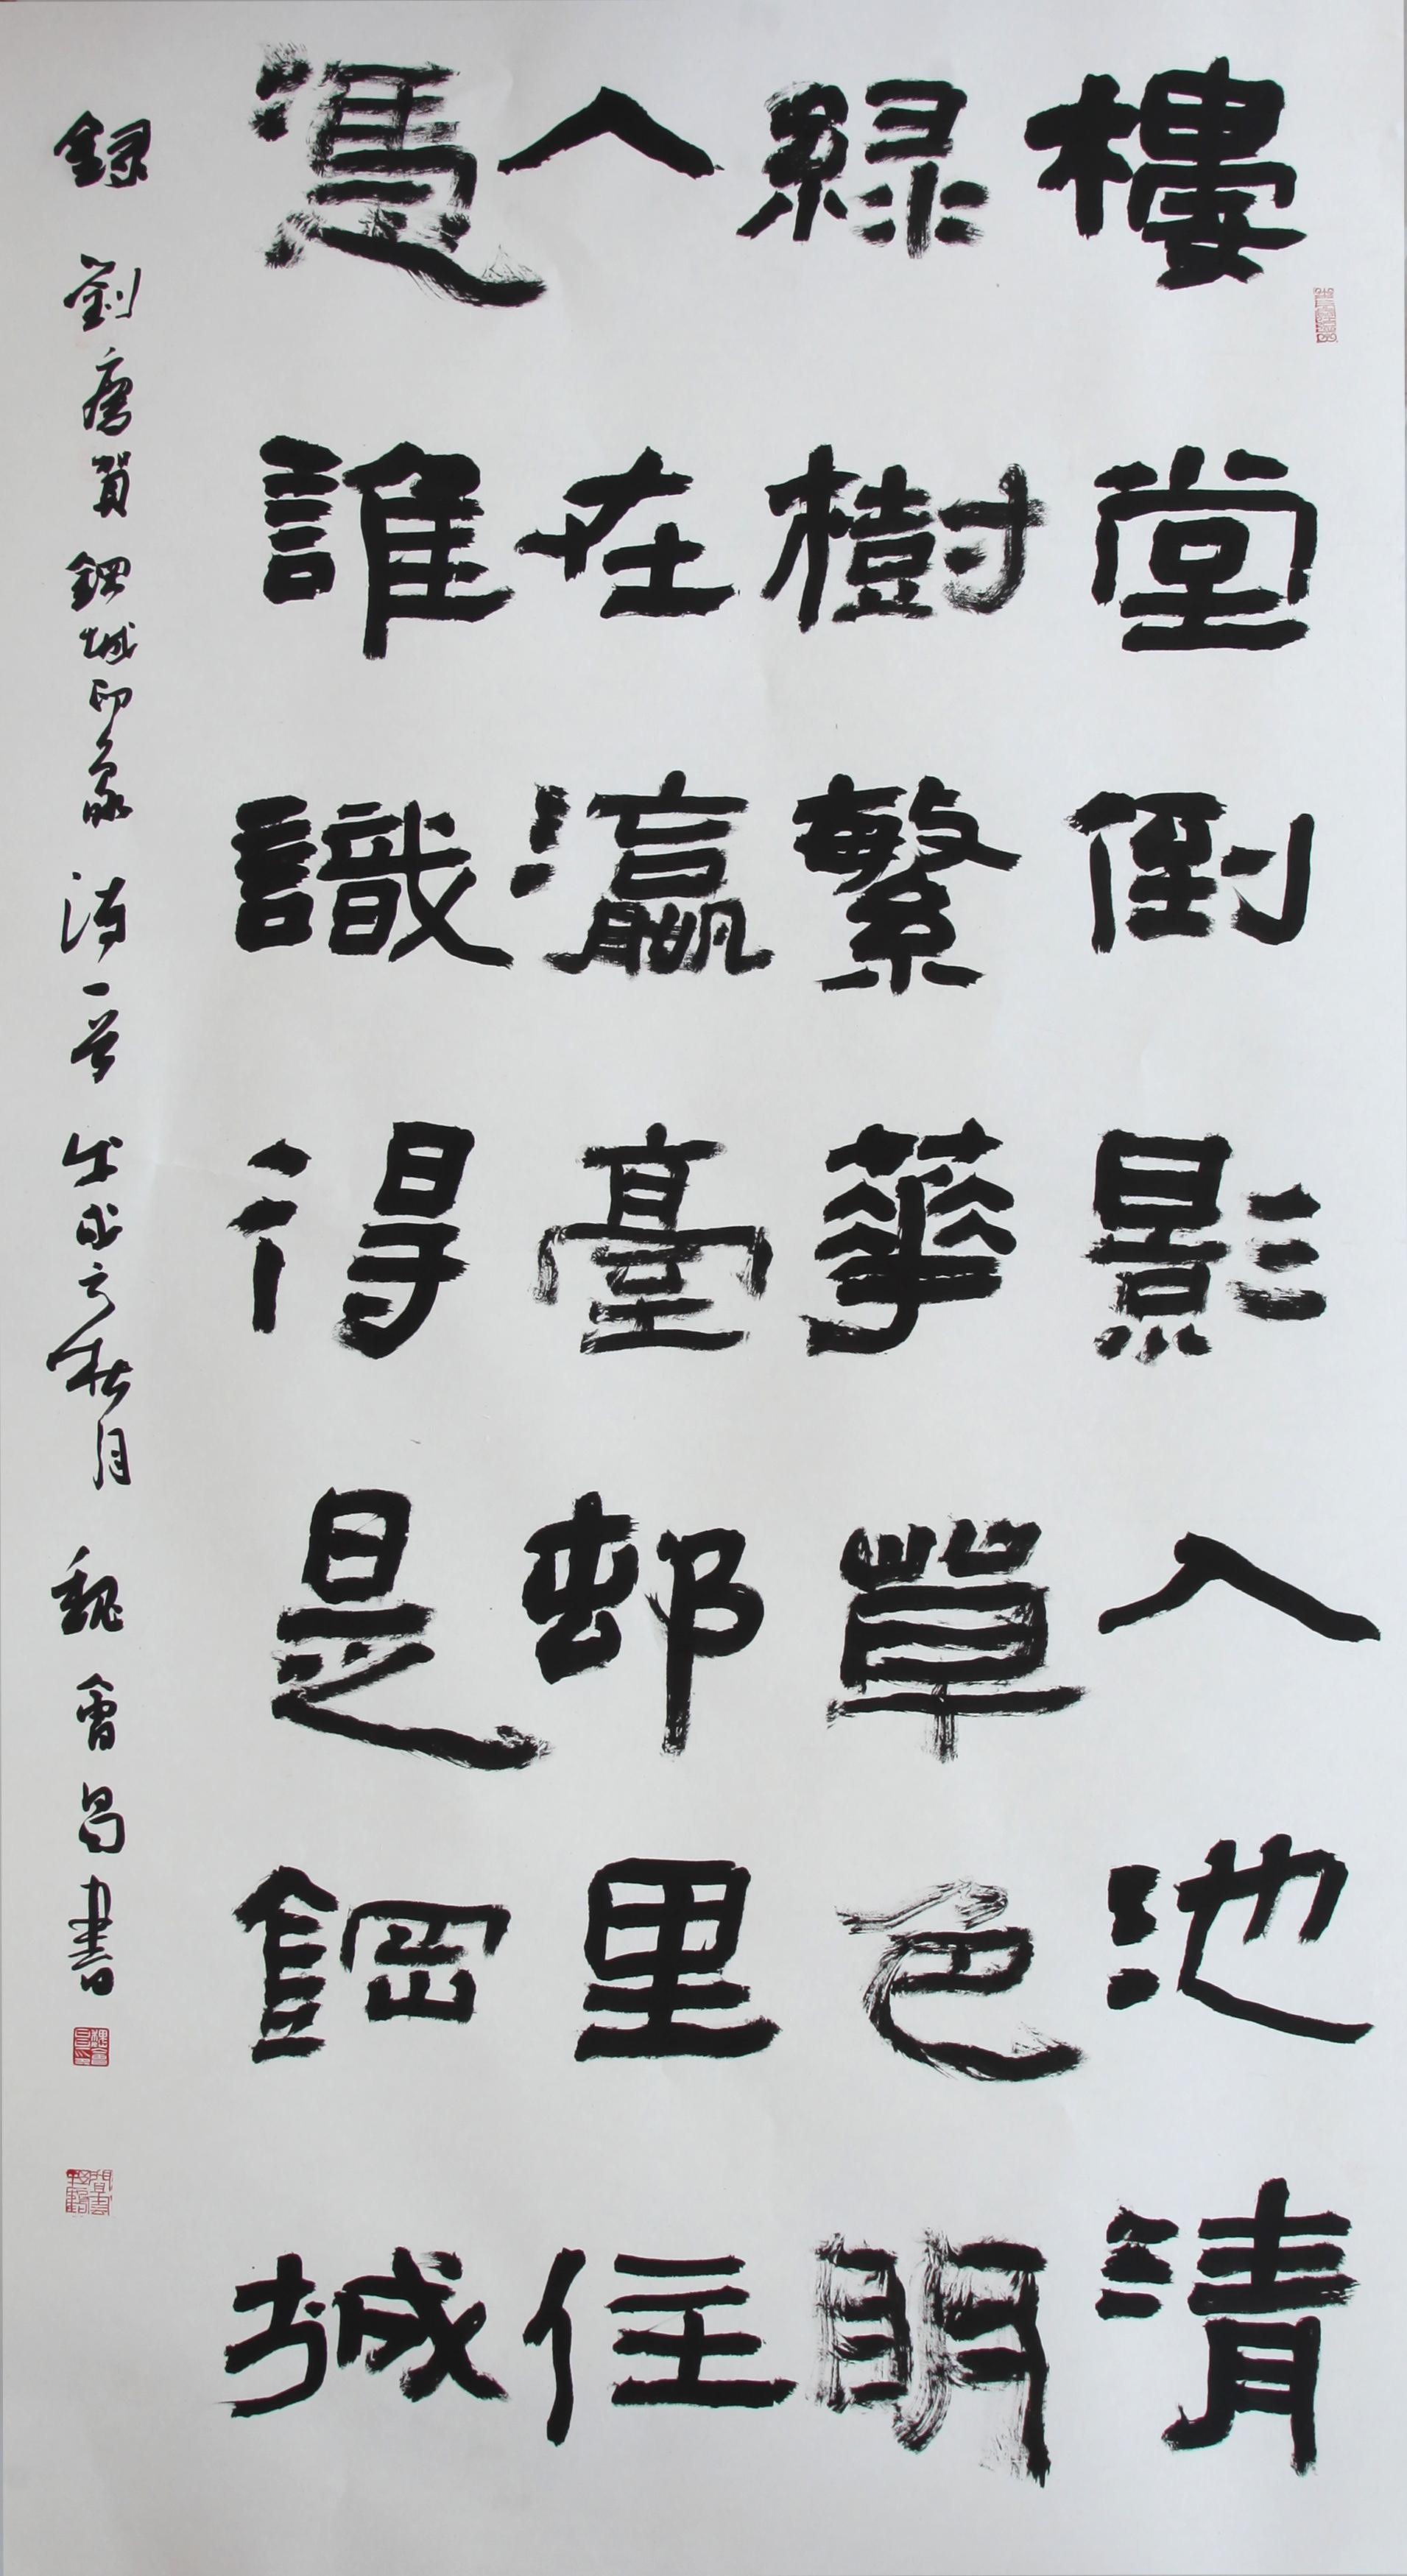 樓堂倒影入池清
綠樹繁華草色明
人在瀛臺邨里住
憑誰識得是鋼城
錄劉唐賀鋼城印象詩一首 戊戌之秋月 魏會昌書